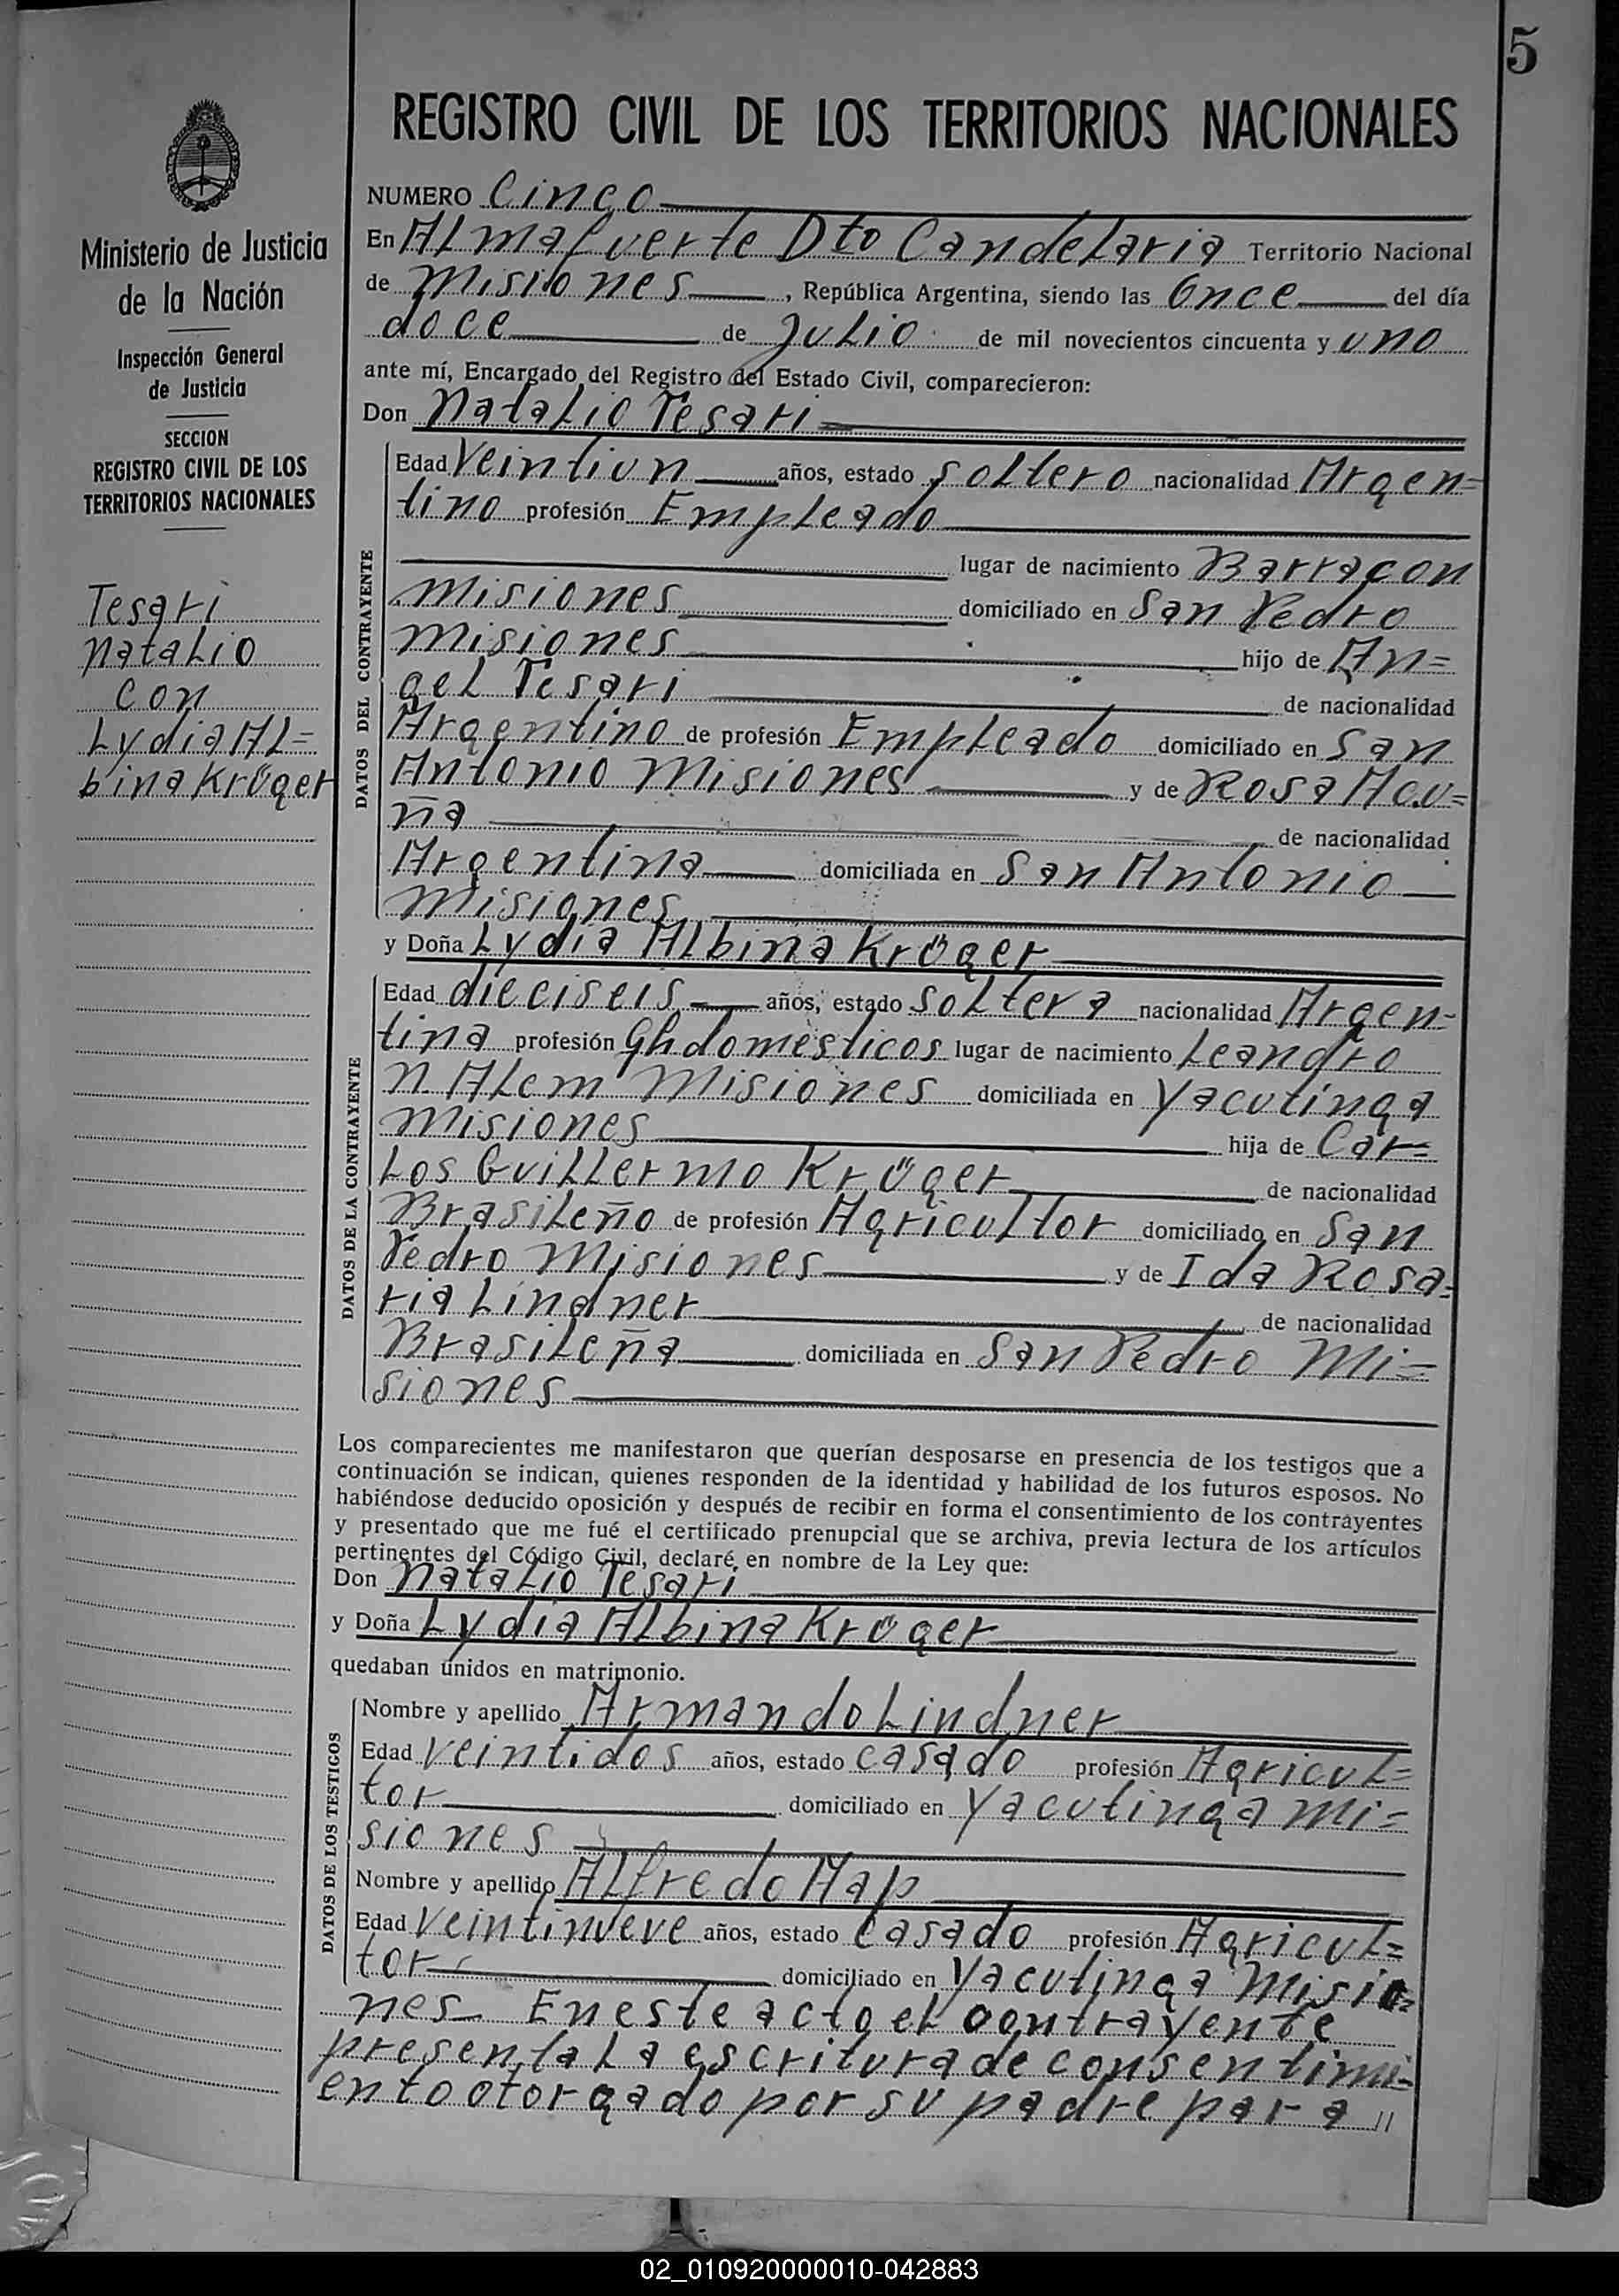 5
REGISTRO CIVIL DE LOS TERRITORIOS NACIONALES
Ministerio de Justicia
de la Nación
Inspección General
de Justicia
SECCION
REGISTRO CIVIL DE LOS
TERRITORIOS NACIONALES
Tesari
Natalio
con
Lydia Al=
bina Kröger
NUMERO Cinco
En Almafuerte Dto Candelaria Territorio Nacional
de Misiones, República Argentina, siendo las Once del día
doce de Julio de mil novecientos cincuenta y uno
ante mí, Encargado del Registro del Estado Civil, comparecieron:
Don Natalio Tesari
DATOS DEL CONTRAYENTE
Edad Veintiun años, estado soltero nacionalidad Argen=
tino profesión Empleado
lugar de nacimiento Barracon
Misiones domiciliado en San Pedro
Misiones hijo de An=
gel Tesari de nacionalidad
Argentino de profesión Empleado domiciliado en San
Antonio Misiones y de Rosa Acu=
ña de nacionalidad
Argentina domiciliada en San Antonio
Misiones
y Doña Lydia Albina Kröger
DATOS DE LA CONTRAYENTE
Edad dieciseis años, estado soltera nacionalidad Argen-
tina profesión Qhdomésticos lugar de nacimiento Leandro
N. Alem Misiones domiciliada en Yacutinga
Misiones hija de Car=
los Guillermo Kröger de nacionalidad
Brasileño de profesión Agricultor domiciliado en San
Pedro Misiones y de Ida Rosa=
ria Lindner de nacionalidad
Brasileña domiciliada en San Pedro Mi=
siones
Los comparecientes me manifestaron que querían desposarse en presencia de los testigos que a
continuación se indican, quienes responden de la identidad y habilidad de los futuros esposos. No
habiéndose deducido oposición y después de recibir en forma el consentimiento de los contrayentes
y presentado que me fué el certificado prenupcial que se archiva, previa lectura de los artículos
pertinentes del Código Civil, declaré en nombre de la Ley que:
Don Natalio Tesari
y Doña Lydia Albina Kröger
quedaban unidos en matrimonio.
DATOS DE LOS TESTIGOS
Nombre y apellido Armando Lindner
Edad veintidos años, estado casado profesión Agricul=
tor domiciliado en Yacutinga Mi=
siones
Nombre y apellido Alfredo Hap
Edad veintinueve años, estado Casado profesión Agricul=
tor domiciliado en Yacutinga Misio=
nes En este acto el contrayente
presenta la escritura de consentimi-
ento otorgado por su padre para //
02_010920000010-042883